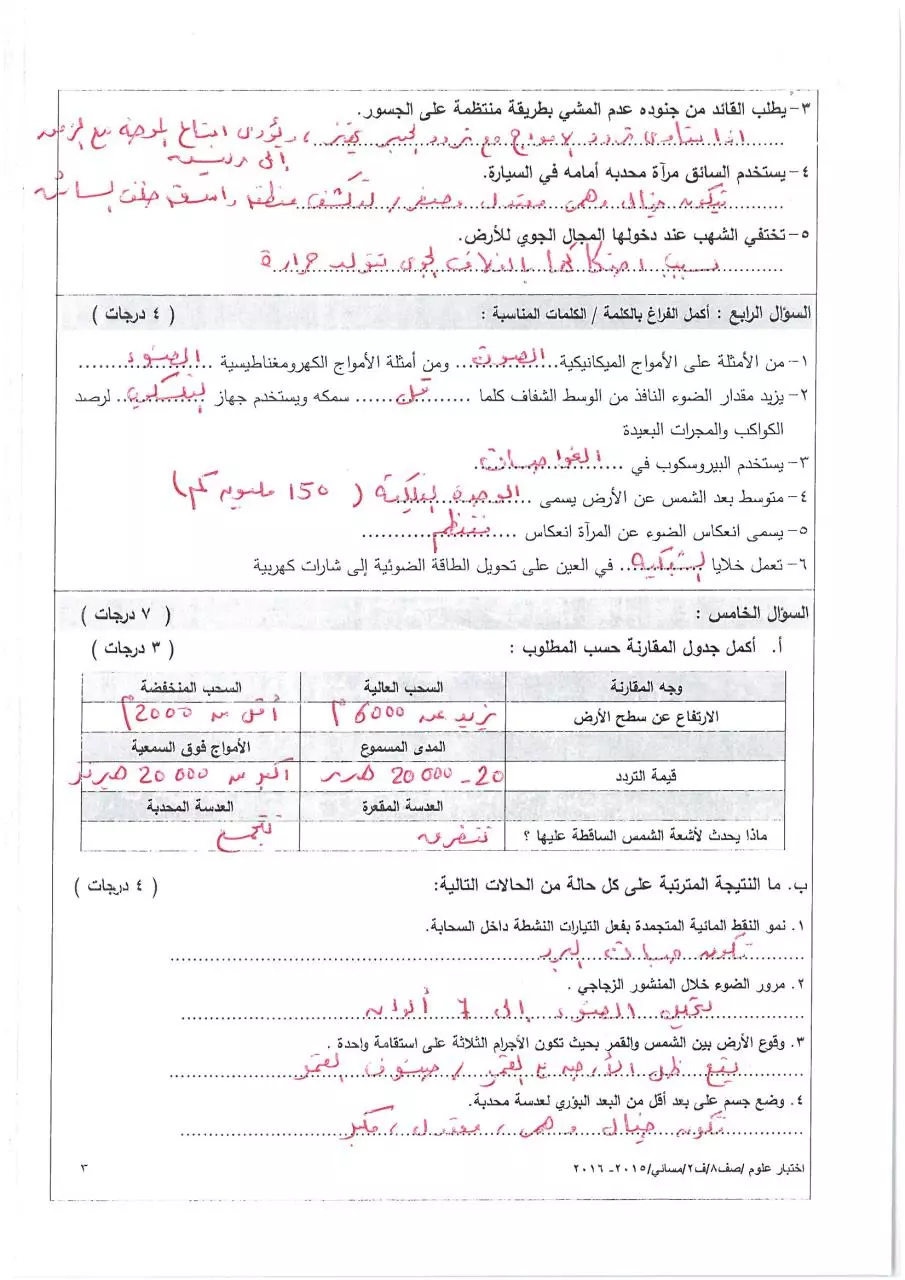 ٣- يطلب القائد من جنوده عدم المشي بطريقة منتظمة على الجسور.
اذا يتساوى تردد الامواج مع تردد الجسر يهتز ، ويؤدي اتساع الموجة مع الزمن
إلى
٤- يستخدم السائق مرآة محدبه أمامه في السيارة.
تكون خيال وهمي معتدل وصغير / لتكشف منطقة واسعة خلف السائق
٥- تختفي الشهب عند دخولها المجال الجوي للأرض.
بسبب احتكاكها بالغلاف الجوي تتولد حرارة
السؤال الرابع : أكمل الفراغ بالكلمة / الكلمات المناسبة : ( ٤ درجات )
١- من الأمثلة على الأمواج الميكانيكية الصوت ومن أمثلة الأمواج الكهرومغناطيسية الضوء
٢- يزيد مقدار الضوء النافذ من الوسط الشفاف كلما قل سمكه ويستخدم جهاز التلسكوب لرصد
الكواكب والمجرات البعيدة
٣- يستخدم البيروسكوب في الغواصات
٤- متوسط بعد الشمس عن الأرض يسمى الوحدة الفلكية ( 150 مليون كم )
٥- يسمى انعكاس الضوء عن المرآة انعكاس منتظم
٦- تعمل خلايا الشبكية في العين على تحويل الطاقة الضوئية إلى شارات كهربية
السؤال الخامس : ( ٧ درجات )
أ. أكمل جدول المقارنة حسب المطلوب : ( ٣ درجات )
وجه المقارنة السحب العالية السحب المنخفضة
الارتفاع عن سطح الأرض تزيد عن 6000 م أقل من 2000 م
المدى المسموع الأمواج فوق السمعية
قيمة التردد 20 - 20000 هرتز أكبر من 20000 هيرتز
العدسة المقعرة العدسة المحدبة
ماذا يحدث لأشعة الشمس الساقطة عليها ؟ تتفرق تتجمع
ب. ما النتيجة المترتبة على كل حالة من الحالات التالية: ( ٤ درجات )
١. نمو النقط المائية المتجمدة بفعل التيارات النشطة داخل السحابة.
تكون حبات البرد
٢. مرور الضوء خلال المنشور الزجاجي .
يتحلل الضوء إلى 7 ألوان
٣. وقوع الأرض بين الشمس والقمر بحيث تكون الأجرام الثلاثة على استقامة واحدة .
يقع ظل الأرض ع القمر / خسوف القمر
٤. وضع جسم على بعد أقل من البعد البؤري لعدسة محدبة.
تكون خيال وهمي ، معتدل ، مكبر
اختبار علوم /صف٨/ف٢/مسائي/٢٠١٥- ٢٠١٦ ٣